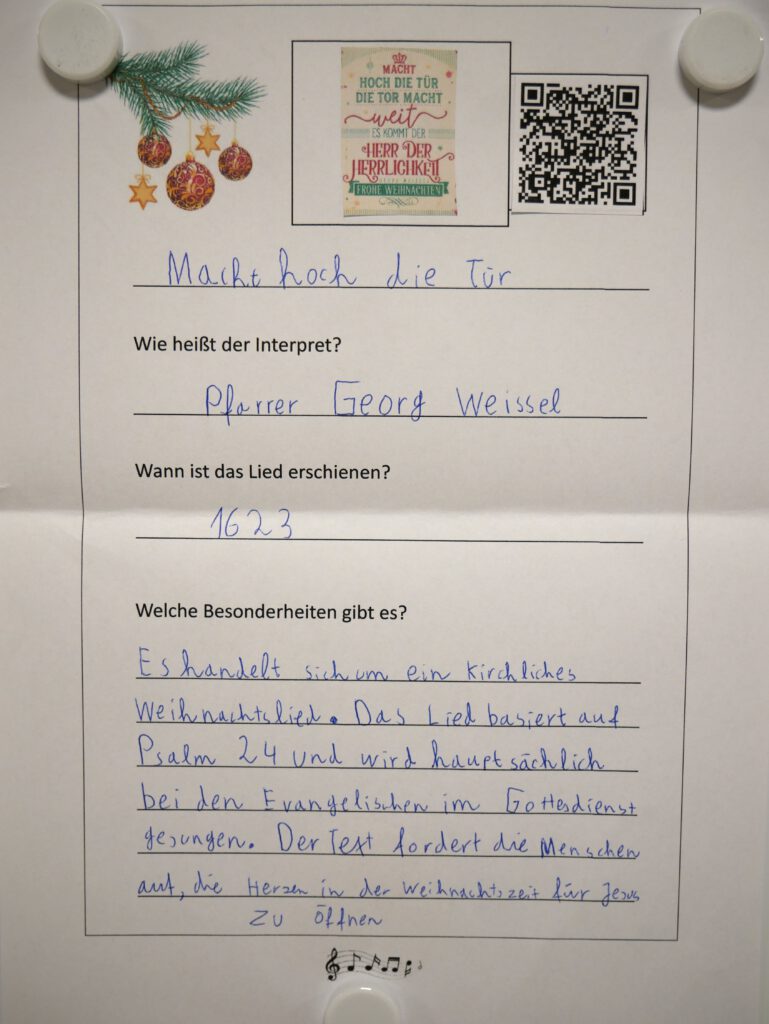 MACHT
HOCH DIE TÜR
DIE TOR MACHT
weit
ES KOMMT DER
HERR DER
HERRLICHKEIT
FROHE WEIHNACHTEN
Macht hoch die Tür
Wie heißt der Interpret?
Pfarrer Georg Weissel
Wann ist das Lied erschienen?
1623
Welche Besonderheiten gibt es?
Es handelt sich um ein kirchliches
Weihnachtslied. Das Lied basiert auf
Psalm 24 und wird hauptsächlich
bei den Evangelischen im Gottesdienst
gesungen. Der Text fordert die Menschen
auf, die Herzen in der Weihnachtszeit für Jesus
zu öffnen